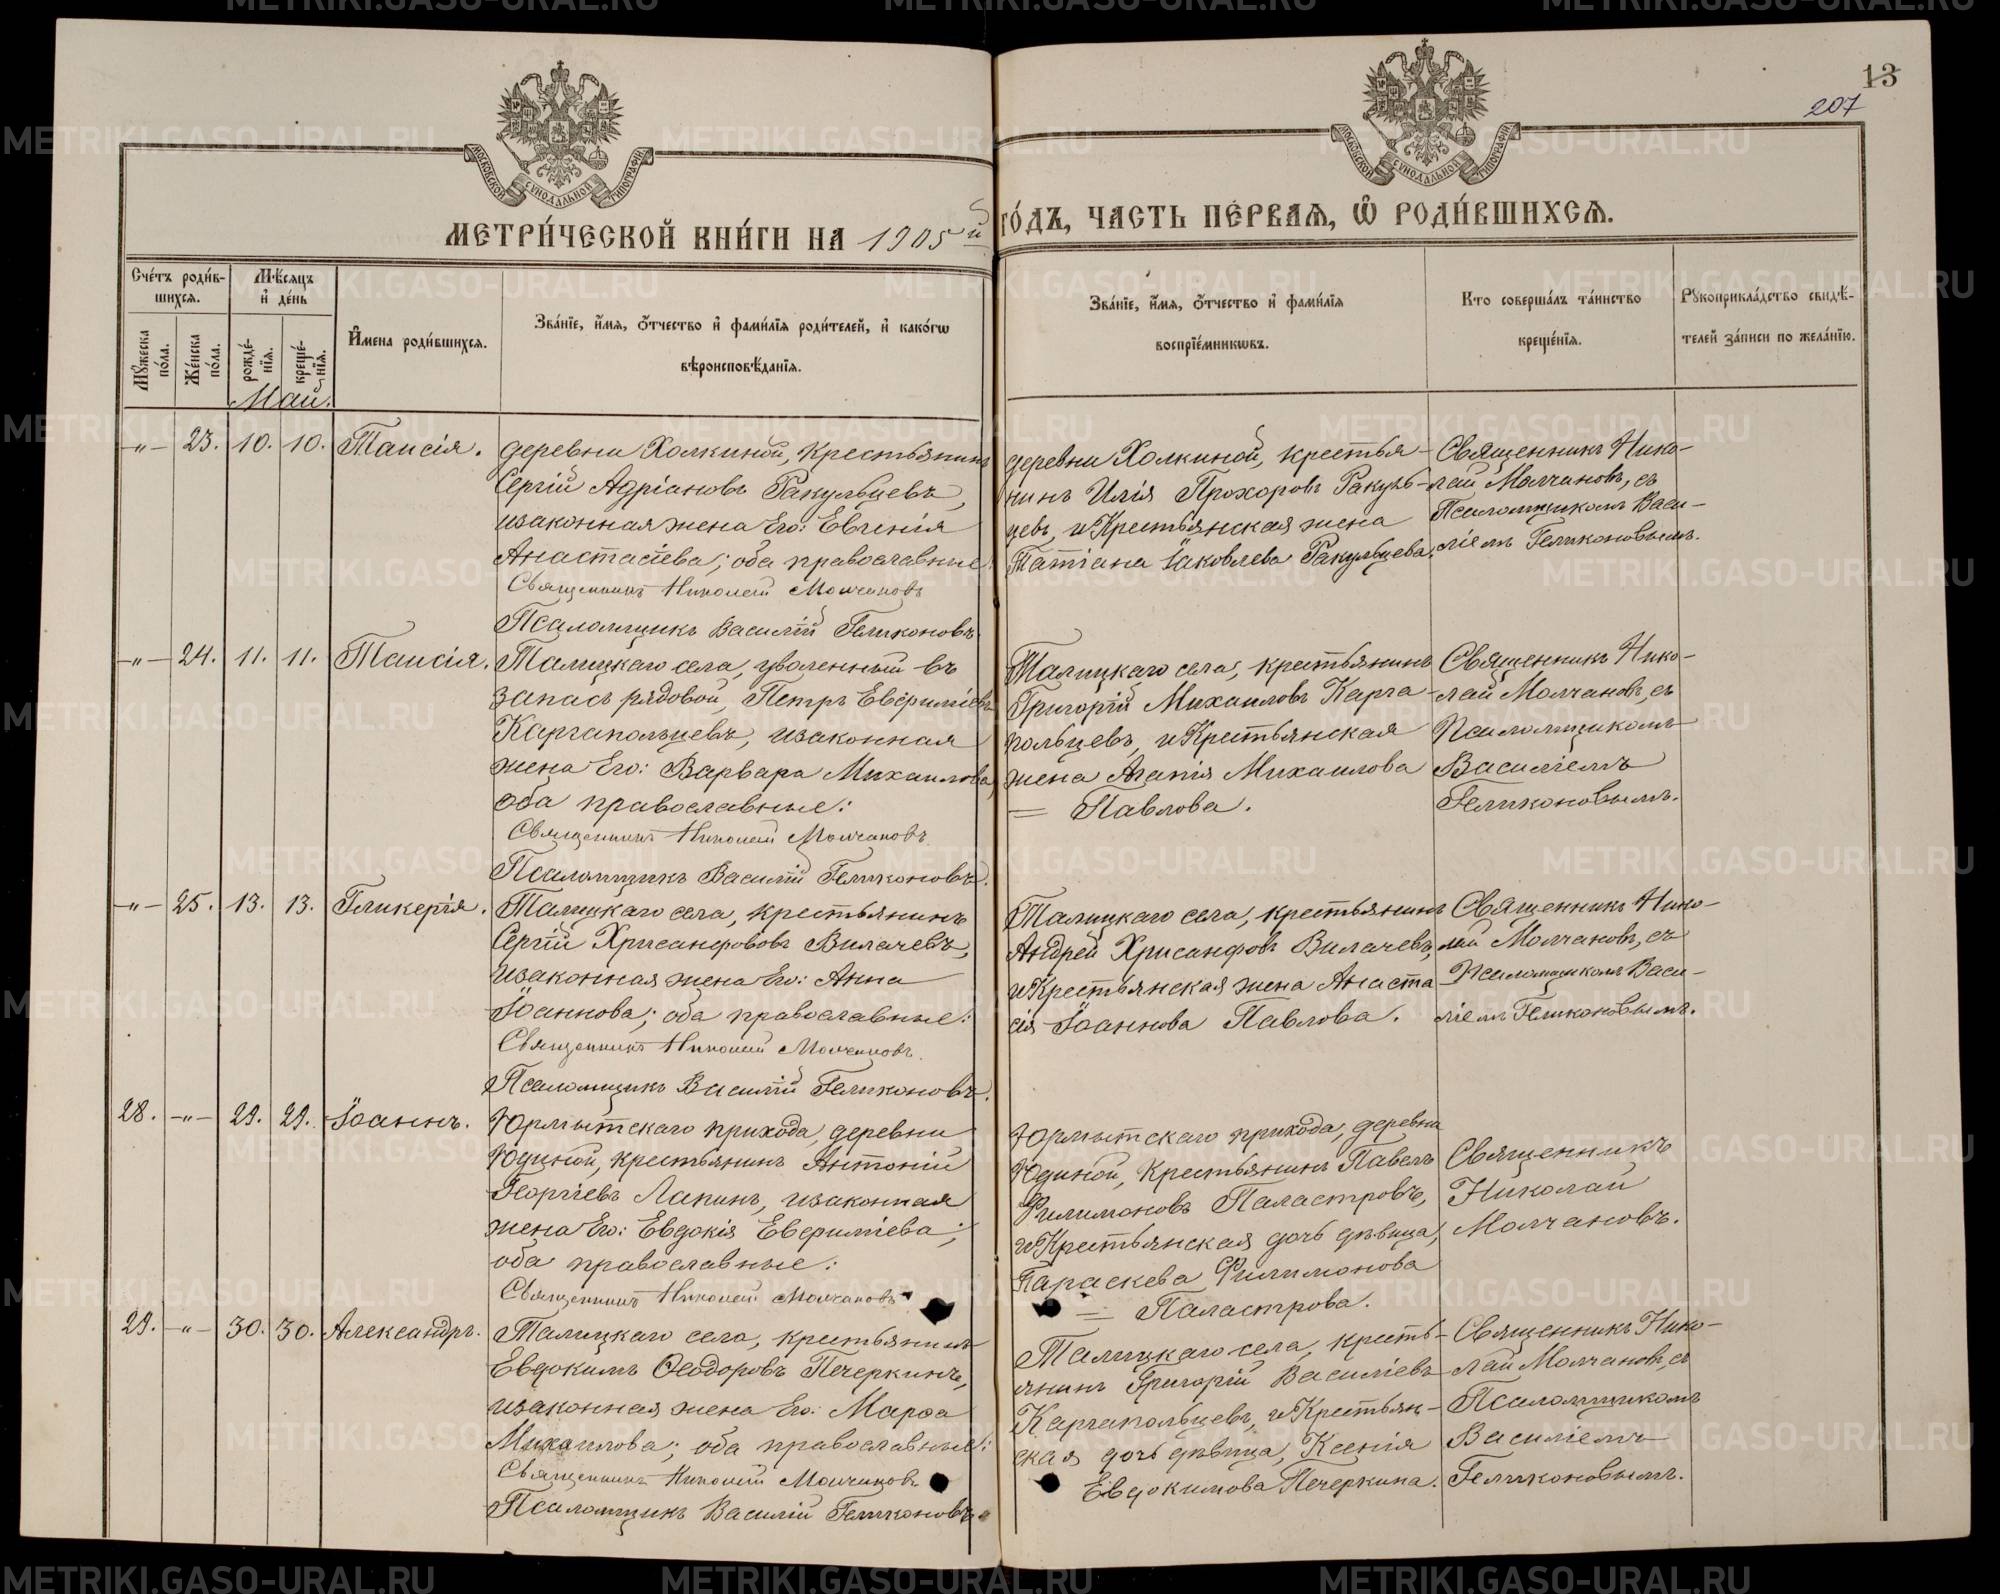 13
207
МОСКОВСКОЙ СѴНОДАЛЬНОЙ ТИПОГРАФІИ
МОСКОВСКОЙ СѴНОДАЛЬНОЙ ТИПОГРАФІИ
МЕТРИ́ЧЕСКОЙ КНИ́ГИ НА 1905 й
ГО́ДЪ, ЧАСТЬ ПЕ́РВАѦ, Ѽ РОДИ́ВШИХСѦ.
Сче́тъ роди́в-
шихсѧ.
Мѣ́сѧцъ
и҆ де́нь
Мꙋ́жеска
по́ла.
Же́нска
по́ла.
рожде́-
нїѧ.
креще́-
нїѧ.
И҆́мена роди́вшихсѧ.
Зва́нїе, и҆́мѧ, ѻ҆́тчество и҆ фами́лїѧ роди́телей, и҆ како́гѡ
вѣроисповѣ́данїѧ.
Зва́нїе, и҆́мѧ, ѻ҆́тчество и҆ фами́лїѧ
воспрїе́мникѡвъ.
Кто соверша́лъ та́инство
креще́нїѧ.
Рꙋкоприкла́дство свидѣ́-
телей за́писи по жела́нїю.
Май.
-"- 23. 10. 10. Таисія.
деревни Холкиной, крестьянинъ
Сергій Адріановъ Ракульцевъ,
изаконная жена Его: Евгенія
Анастасіева; оба православные:
Священникъ Николай Молчановъ
Псаломщикъ Василій Геликоновъ.
деревни Холкиной, крестья-
нинъ Илія Прохоровъ Ракуль-
цевъ, и Крестьянская жена
Татіана Іаковлева Ракульцева.
Священникъ Нико-
лай Молчановъ, съ
Псаломщикомъ Васи-
ліемъ Геликоновымъ.
-"- 24. 11. 11. Таисія.
Талицкаго села, уволенный въ
запасъ рядовой, Петръ Евѳиміевъ
Каргапольцевъ, изаконная
жена Его: Варвара Михаилова,
оба православные:
Священникъ Николай Молчановъ
Псаломщикъ Василій Геликоновъ.
Талицкаго села, крестьянинъ
Григорій Михаиловъ Карга-
польцевъ, и Крестьянская
жена Агапія Михаилова
= Павлова.
Священникъ Нико-
лай Молчановъ, съ
Псаломщикомъ
Василіемъ
Геликоновымъ.
-"- 25. 13. 13. Гликерія.
Талицкаго села, крестьянинъ
Сергій Хрисанфововъ Вилачевъ,
изаконная жена Его: Анна
Іоаннова; оба православные:
Священникъ Николай Молчановъ.
Псаломщикъ Василій Геликоновъ.
Талицкаго села, крестьянинъ
Андрей Хрисанфовъ Вилачевъ,
и Крестьянская жена Анаста
сія Іоаннова Павлова.
Священникъ Нико-
лай Молчановъ, съ
Псаломщикомъ Васи-
ліемъ Геликоновымъ.
28. -"- 29. 29. Іоаннъ.
Юрмытскаго прихода, деревни
Юдиной, крестьянинъ Антоній
Георгіевъ Лапинъ, изаконная
жена Его: Евдокія Евѳиміева;
оба православные:
Священникъ Николай Молчановъ
Юрмытскаго прихода, деревни
Юдиной, Крестьянинъ Павелъ
Филимоновъ Паластровъ,
и Крестьянская дочь дѣвица,
Параскева Филимонова
= Паластрова.
Священникъ
Николай
Молчановъ.
29. -"- 30. 30. Александръ.
Талицкаго села, крестьянинъ
Евдокимъ Ѳеодоровъ Печеркинъ,
изаконная жена Его: Марѳа
Михаилова; оба православные:
Священникъ Николай Молчановъ
Псаломщикъ Василій Геликоновъ.
Талицкаго села, кресть-
янинъ Григорій Василіевъ
Каргапольцевъ, и Крестьян-
ская дочь дѣвица, Ксенія
Евдокимова Печеркина.
Священникъ Нико-
лай Молчановъ, съ
Псаломщикомъ
Василіемъ
Геликоновымъ.
METRIKI.GASO-URAL.RU